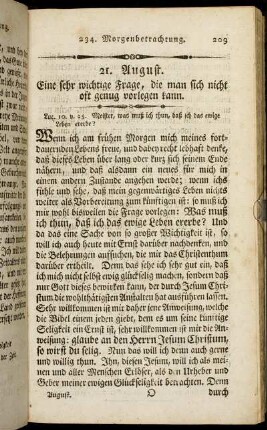 234. Morgenbetrachtung. 209
21. August.
Eine sehr wichtige Frage, die man sich nicht
oft genug vorlegen kann.
Luc. 10. v. 25. Meister, was muß ich thun, daß ich das ewige
Leben ererbe?
Wenn ich am frühen Morgen mich meines fort-
dauernden Lebens freue, und dabey recht lebhaft denke,
daß dieses Leben über lang oder kurz sich seinem Ende
nähern, und daß alsdann ein neues für mich in
einem andern Zustande angehen werde; wenn ichs
fühle und sehe, daß mein gegenwärtiges Leben nichts
weiter als Vorbereitung zum künftigen ist: so muß ich
mir wohl bisweilen die Frage vorlegen: Was muß
ich thun, daß ich das ewige Leben ererbe? Und
da das eine Sache von so großer Wichtigkeit ist, so
will ich auch heute mit Ernst darüber nachdenken, und
die Belehrungen aufsuchen, die mir das Christenthum
darüber ertheilt. Denn das sehe ich sehr gut ein, daß
ich mich nicht selbst ewig glückselig machen, sondern daß
nur Gott dieses bewirken kann, der durch Jesum Chri-
stum die wohlthätigsten Anstalten hat ausführen lassen.
Sehr willkommen ist mir daher jene Anweisung, welche
die Bibel einem jeden giebt, dem es um seine künftige
Seligkeit ein Ernst ist, sehr willkommen ist mir die An-
weisung: glaube an den Herrn Jesum Christum,
so wirst du selig. Nun das will ich denn auch gerne
und willig thun. Ihn, diesen Jesum, will ich als mei-
nen und aller Menschen Erlöser, als den Urheber und
Geber meiner ewigen Glückseligkeit betrachten. Denn
August. O durch